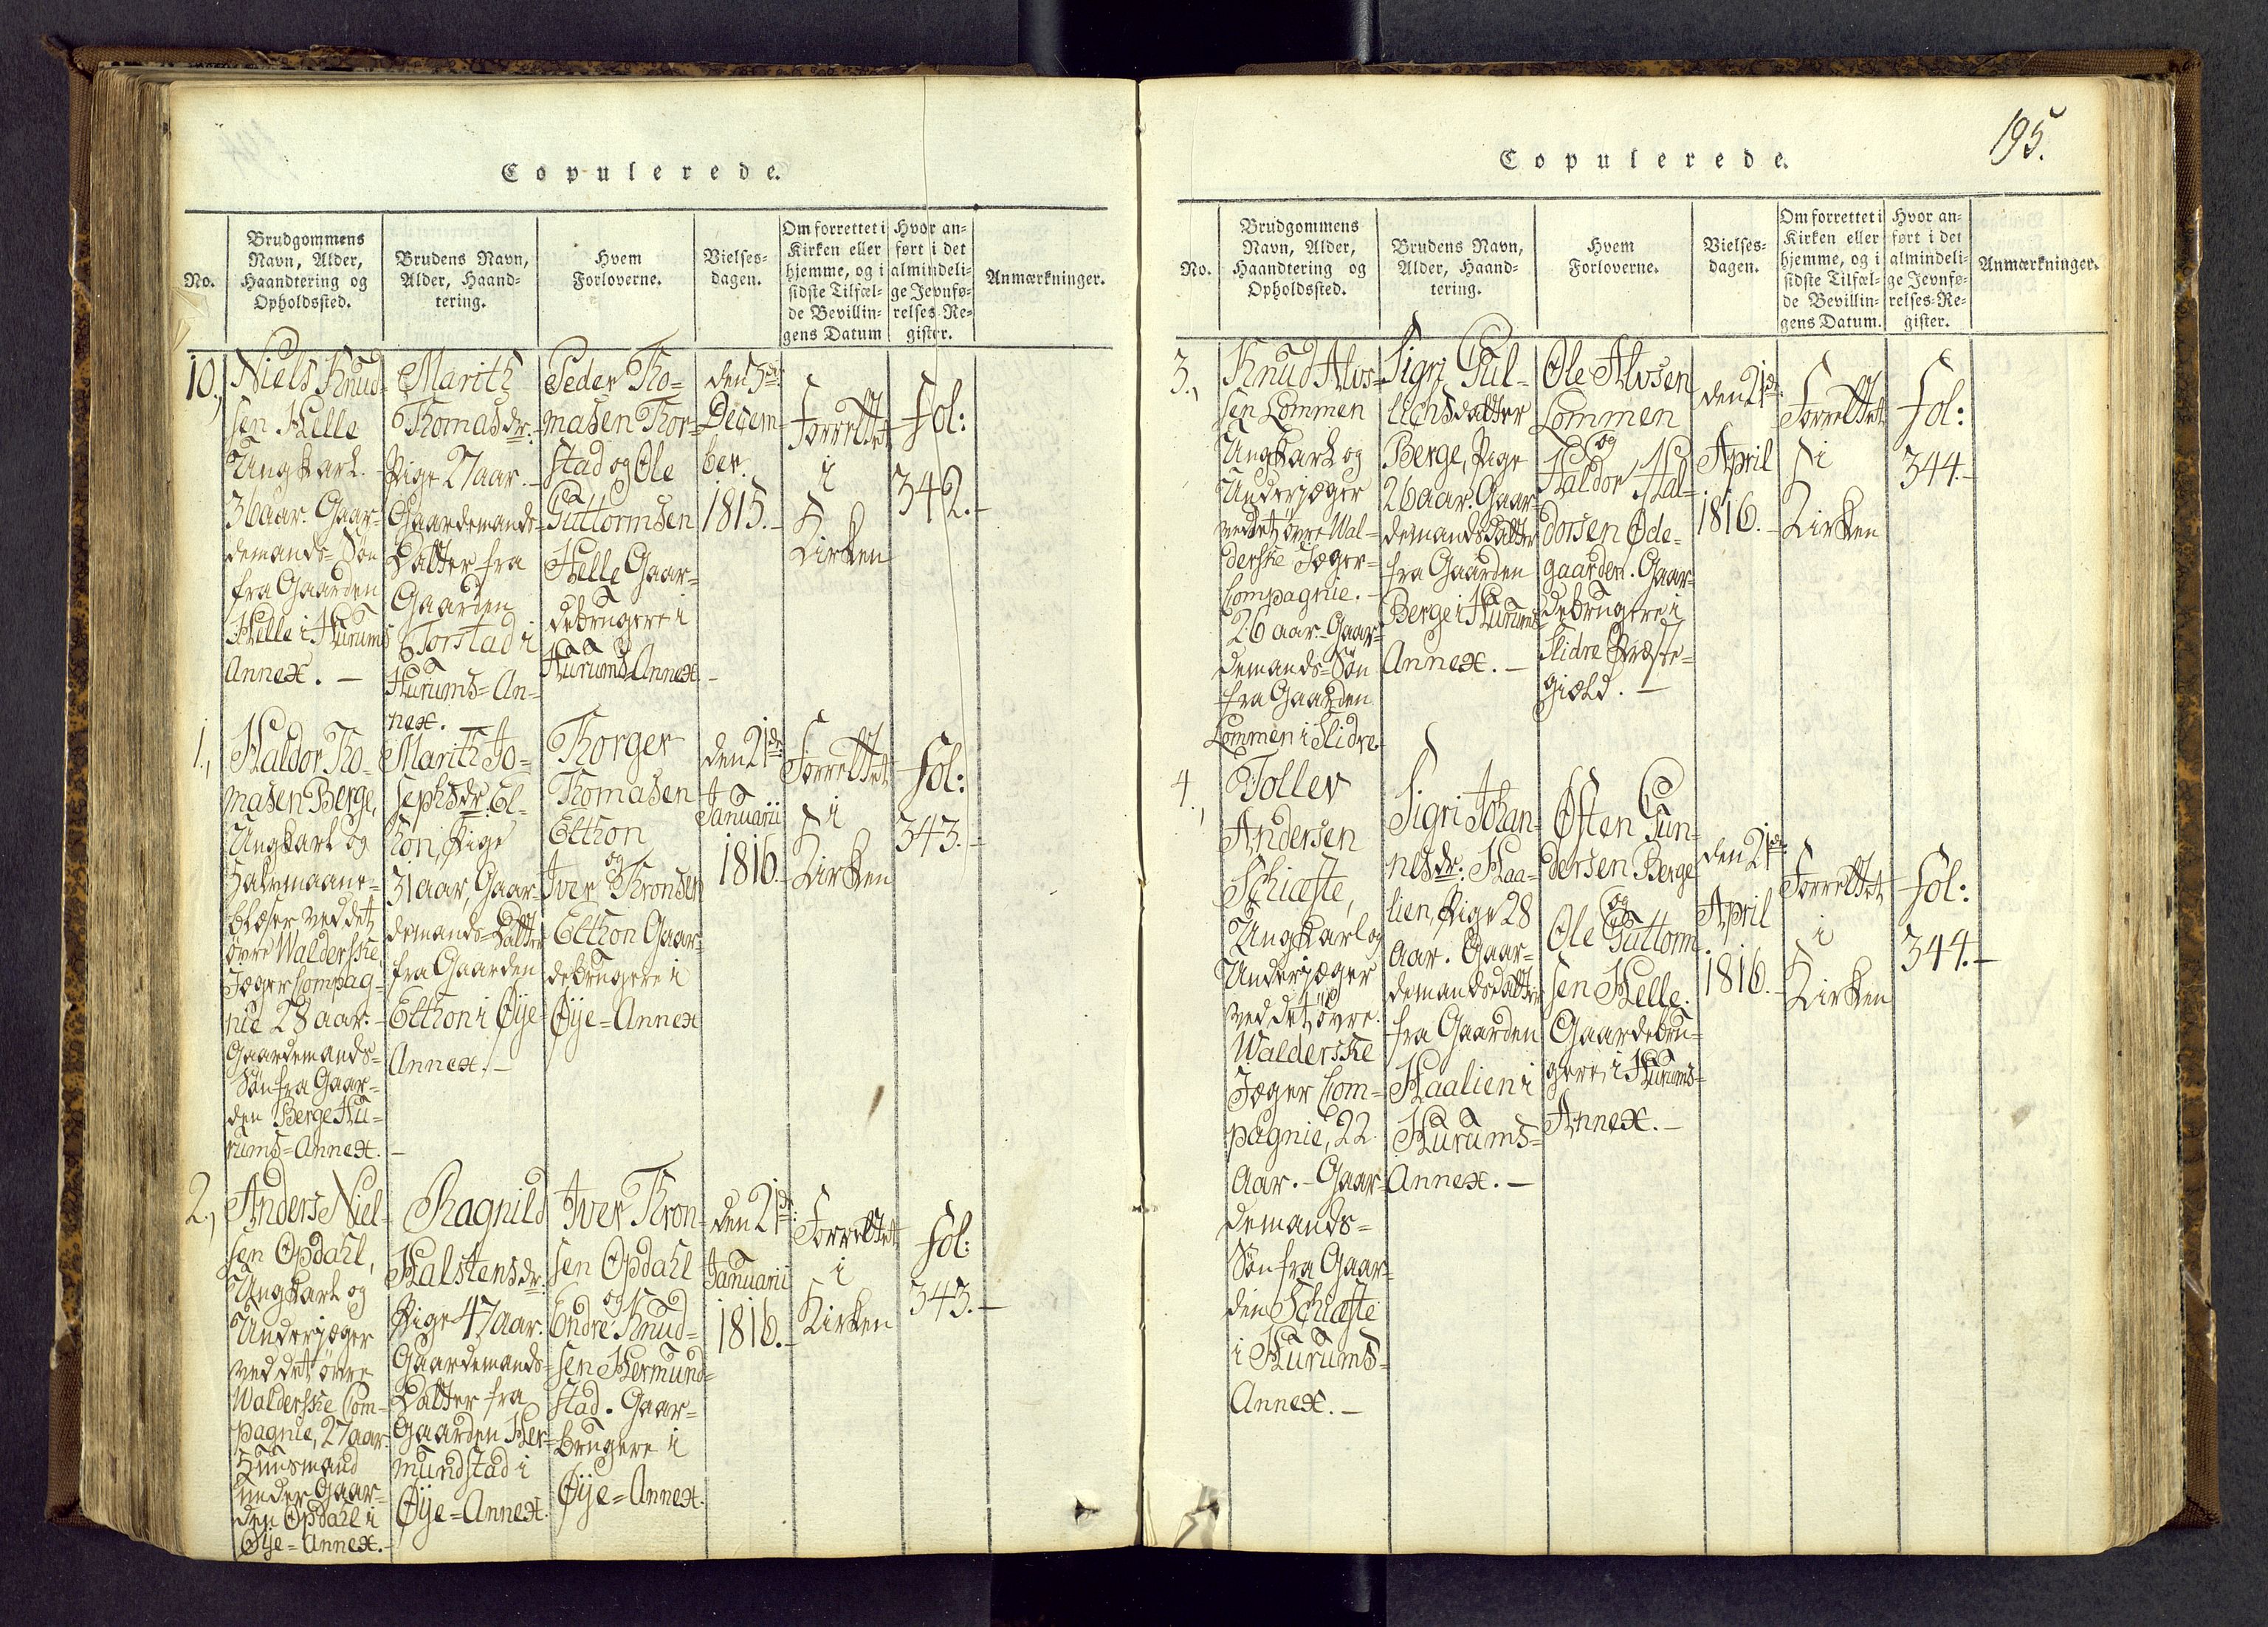 Copulerede.
No.
Brudgommens
Navn, Alder,
Haandtering og
Opholdssted.
Brudens Navn,
Alder, Haand-
tering.
Hvem
Forloverne.
Vielses-
dagen.
Om forrettet i
Kirken eller
hjemme, og i
sidste Tilfæl-
de Bevillin-
gens Datum
Hvor an-
ført i det
almindeli-
ge Jevnfø-
relses-Re-
gister.
Anmærkninger.
10.,
Niels Knud-
sen Helle
Ungkarl.
36 aar. Gaar-
demands-Søn
fra Gaarden
Helle i Hurums
Annex. -
Marith
Thomasdr:
Pige 27 aar. -
Gaardemands-
Datter fra
Gaarden
Torstad i
Hurums-An-
nex. -
Peder Tho-
masen Thor-
stad og Ole
Guttormsen
Helle Gaar-
debrugere i
Hurums-Annex -
den 3die
Decem
ber.
1815. -
Forrettet
i
Kirken
fol:
342. -
1.,
Haldor Tho-
masen Berge,
Ungkarl og
Halvmaane-
blæser ved det
øvre Walderske
Jæger Compag-
nie 28 aar. -
Gaardemands-
Søn fra Gaar-
den Berge Hu-
rums-Annex. -
Marith Jo-
sephsdr. El-
thon, Pige
31 aar, Gaar-
demands-Datter
fra Gaarden
Elthon i Øije-
Annex. -
Thorger
Thomasen
Elthon
og
Iver Thronsen
Elthon Gaar-
debrugere i
Øije-Annex
den 21de
Januarii
1816. -
Forrettet
i
Kirken
fol:
343. -
2.,
Anders Niel-
sen Opdahl,
Ungkarl og
Underjæger
ved det øvre
Walderske Com-
pagnie, 27 aar.
Huusmand
under Gaar-
den Opdahl i
Øije-Annex. -
Ragnild
Halstensdr:
Pige 47 aar.
Gaardemands-
Datter fra
Gaarden Her-
mundstad i
Øije-Annex.
Iver Thron-
sen Opdahl
og
Endre Knud-
sen Hermund-
stad. Gaar-
brugere i
Øije-Annex.
den 21de:
Januarii
1816. -
Forrettet
i
Kirken
fol:
343. -
195.
Copulerede.
No.
Brudgommens
Navn, Alder,
Haandtering og
Opholdssted.
Brudens Navn,
Alder, Haand-
tering.
Hvem
Forloverne.
Vielses-
dagen.
Om forrettet i
Kirken eller
hjemme, og i
sidste Tilfæl-
de Bevillin-
gens Datum.
Hvor an-
ført i det
almindeli-
ge Jevnfø-
relses-Re-
gister.
Anmærkninger.
3.,
Knud Alvs-
sen Lommen
Ungkarl og
Underjæger
ved det øvre Wal-
derske Jæger-
Compagnie. -
26 aar. - Gaar-
demands-Søn
fra Gaarden
Lommen i Slidre.
Sigri Gul-
lichsdatter
Berge, Pige
26 aar. Gaar-
demandsdatter
fra Gaarden
Berge i Hurums-
Annex. -
Ole Alvsen
Lommen
og
Haldor Hal-
dorsen Øde-
gaarden. Gaar-
debrugere i
Slidre Præste-
giæld. -
den 21de
April
1816. -
Forrettet
i
Kirken
fol:
344. -
4.,
Tollev
Andersen
Schiæfte,
Ungkarl og
Underjæger
ved det øvre
Walderske
Jæger Com-
pagnie, 22
Aar. - Gaar-
demands-
Søn fra Gaar-
den Schiæfte
i Hurums-
Annex. -
Sigri Johan-
nesdr: Haa-
lien, Pige 28
Aar. Gaar-
demandsdatter
fra Gaarden
Haalien i
Hurums-
Annex. -
Østen Gun-
dersen Berge
og
Ole Guttorm
sen Helle.
Gaardebru-
gere i Hurums-
Annex. -
den 21de
April
1816. -
Forrettet
i
Kirken
fol:
344. -